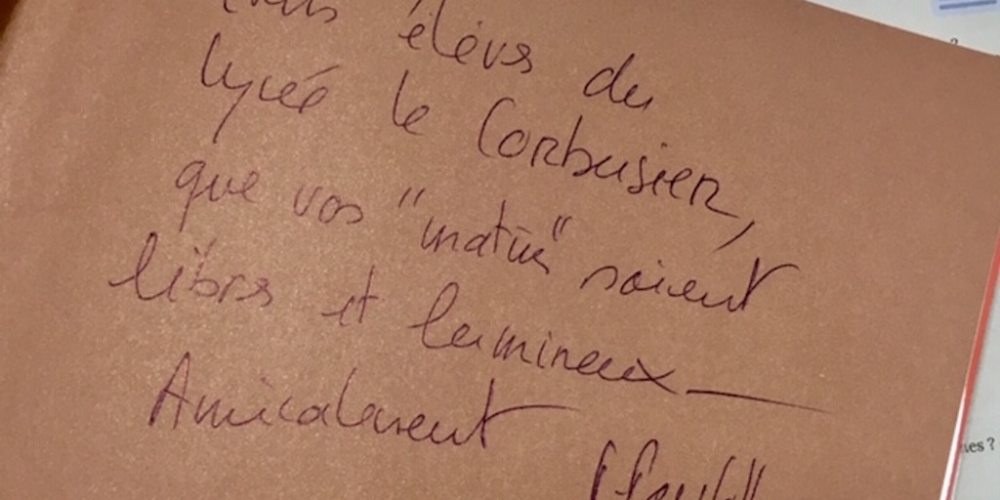 élèves du
lycée le Corbusier,
que vos "matins" soient
libres et lumineux
Amicalement